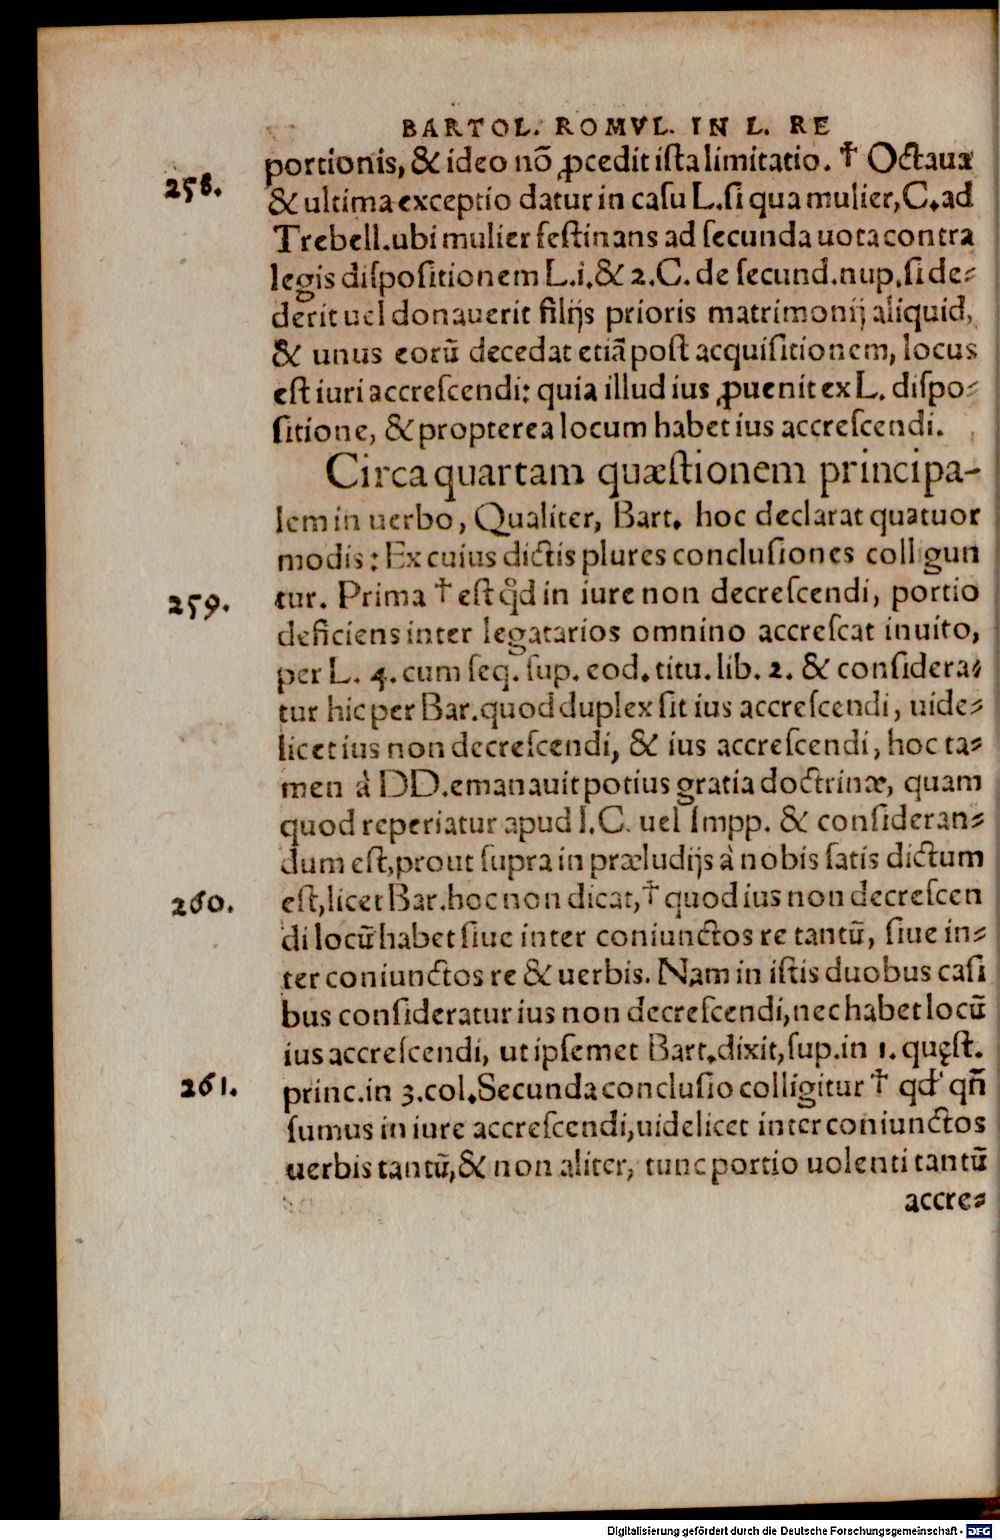 BARTOL. ROMVL. IN L. RE
portionis, & ideo nõ ꝓcedit ista limitatio. † Octaua
258.
& ultima exceptio datur in casu L. si qua mulier, C. ad
Trebell. ubi mulier festinans ad secunda uota contra
legis dispositionem L. i. & 2. C. de secund. nup. si de-
derit uel donauerit filijs prioris matrimonij aliquid,
& unus eorũ decedat etiã post acquisitionem, locus
est iuri accrescendi: quia illud ius ꝓuenit ex L. dispo-
sitione, & propterea locum habet ius accrescendi.
Circa quartam quæstionem principa-
lem in uerbo, Qualiter, Bart. hoc declarat quatuor
modis: Ex cuius dictis plures conclusiones colligun
259.
tur. Prima † est qd̃ in iure non decrescendi, portio
deficiens inter legatarios omnino accrescat inuito,
per L. 4. cum seq. sup. eod. titu. lib. 2. & considera-
tur hic per Bar. quod duplex sit ius accrescendi, uide-
licet ius non decrescendi, & ius accrescendi, hoc ta-
men à DD. emanauit potius gratia doctrinæ, quam
quod reperiatur apud I.C. uel Impp. & consideran-
dum est, prout supra in præludijs à nobis satis dictum
260.
est, licet Bar. hoc non dicat, † quod ius non decrescen
di locũ habet siue inter coniunctos re tantũ, siue in-
ter coniunctos re & uerbis. Nam in istis duobus casi
bus consideratur ius non decrescendi, nec habet locũ
ius accrescendi, ut ipsemet Bart. dixit, sup. in 1. quęst.
261.
princ. in 3. col. Secunda conclusio colligitur † qd' qñ
sumus in iure accrescendi, uidelicet inter coniunctos
uerbis tantũ, & non aliter, tunc portio uolenti tantũ
accre-
Digitalisierung gefördert durch die Deutsche Forschungsgemeinschaft - DFG